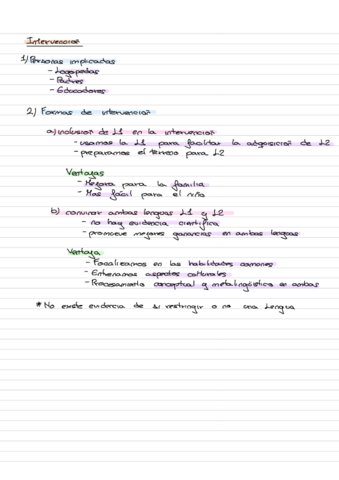 Intervención
1) Personas implicadas
- Logopedas
- Padres
- Educadores
2) Formas de intervención
a) inclusión de L1 en la intervención
- usamos la L1 para facilitar la adquisición de L2
- preparamos el terreno para L2
Ventajas
- Mejora para la familia
- Más fácil para el niño
b) combinar ambas lenguas L1 y L2
- no hay evidencia científica
- promueve mejores ganancias en ambas lenguas
Ventaja
- Focalizamos en las habilidades comunes
- Entrenamos aspectos culturales
- Procesamiento conceptual y metalingüístico en ambas
* No existe evidencia de si restringir o no una Lengua